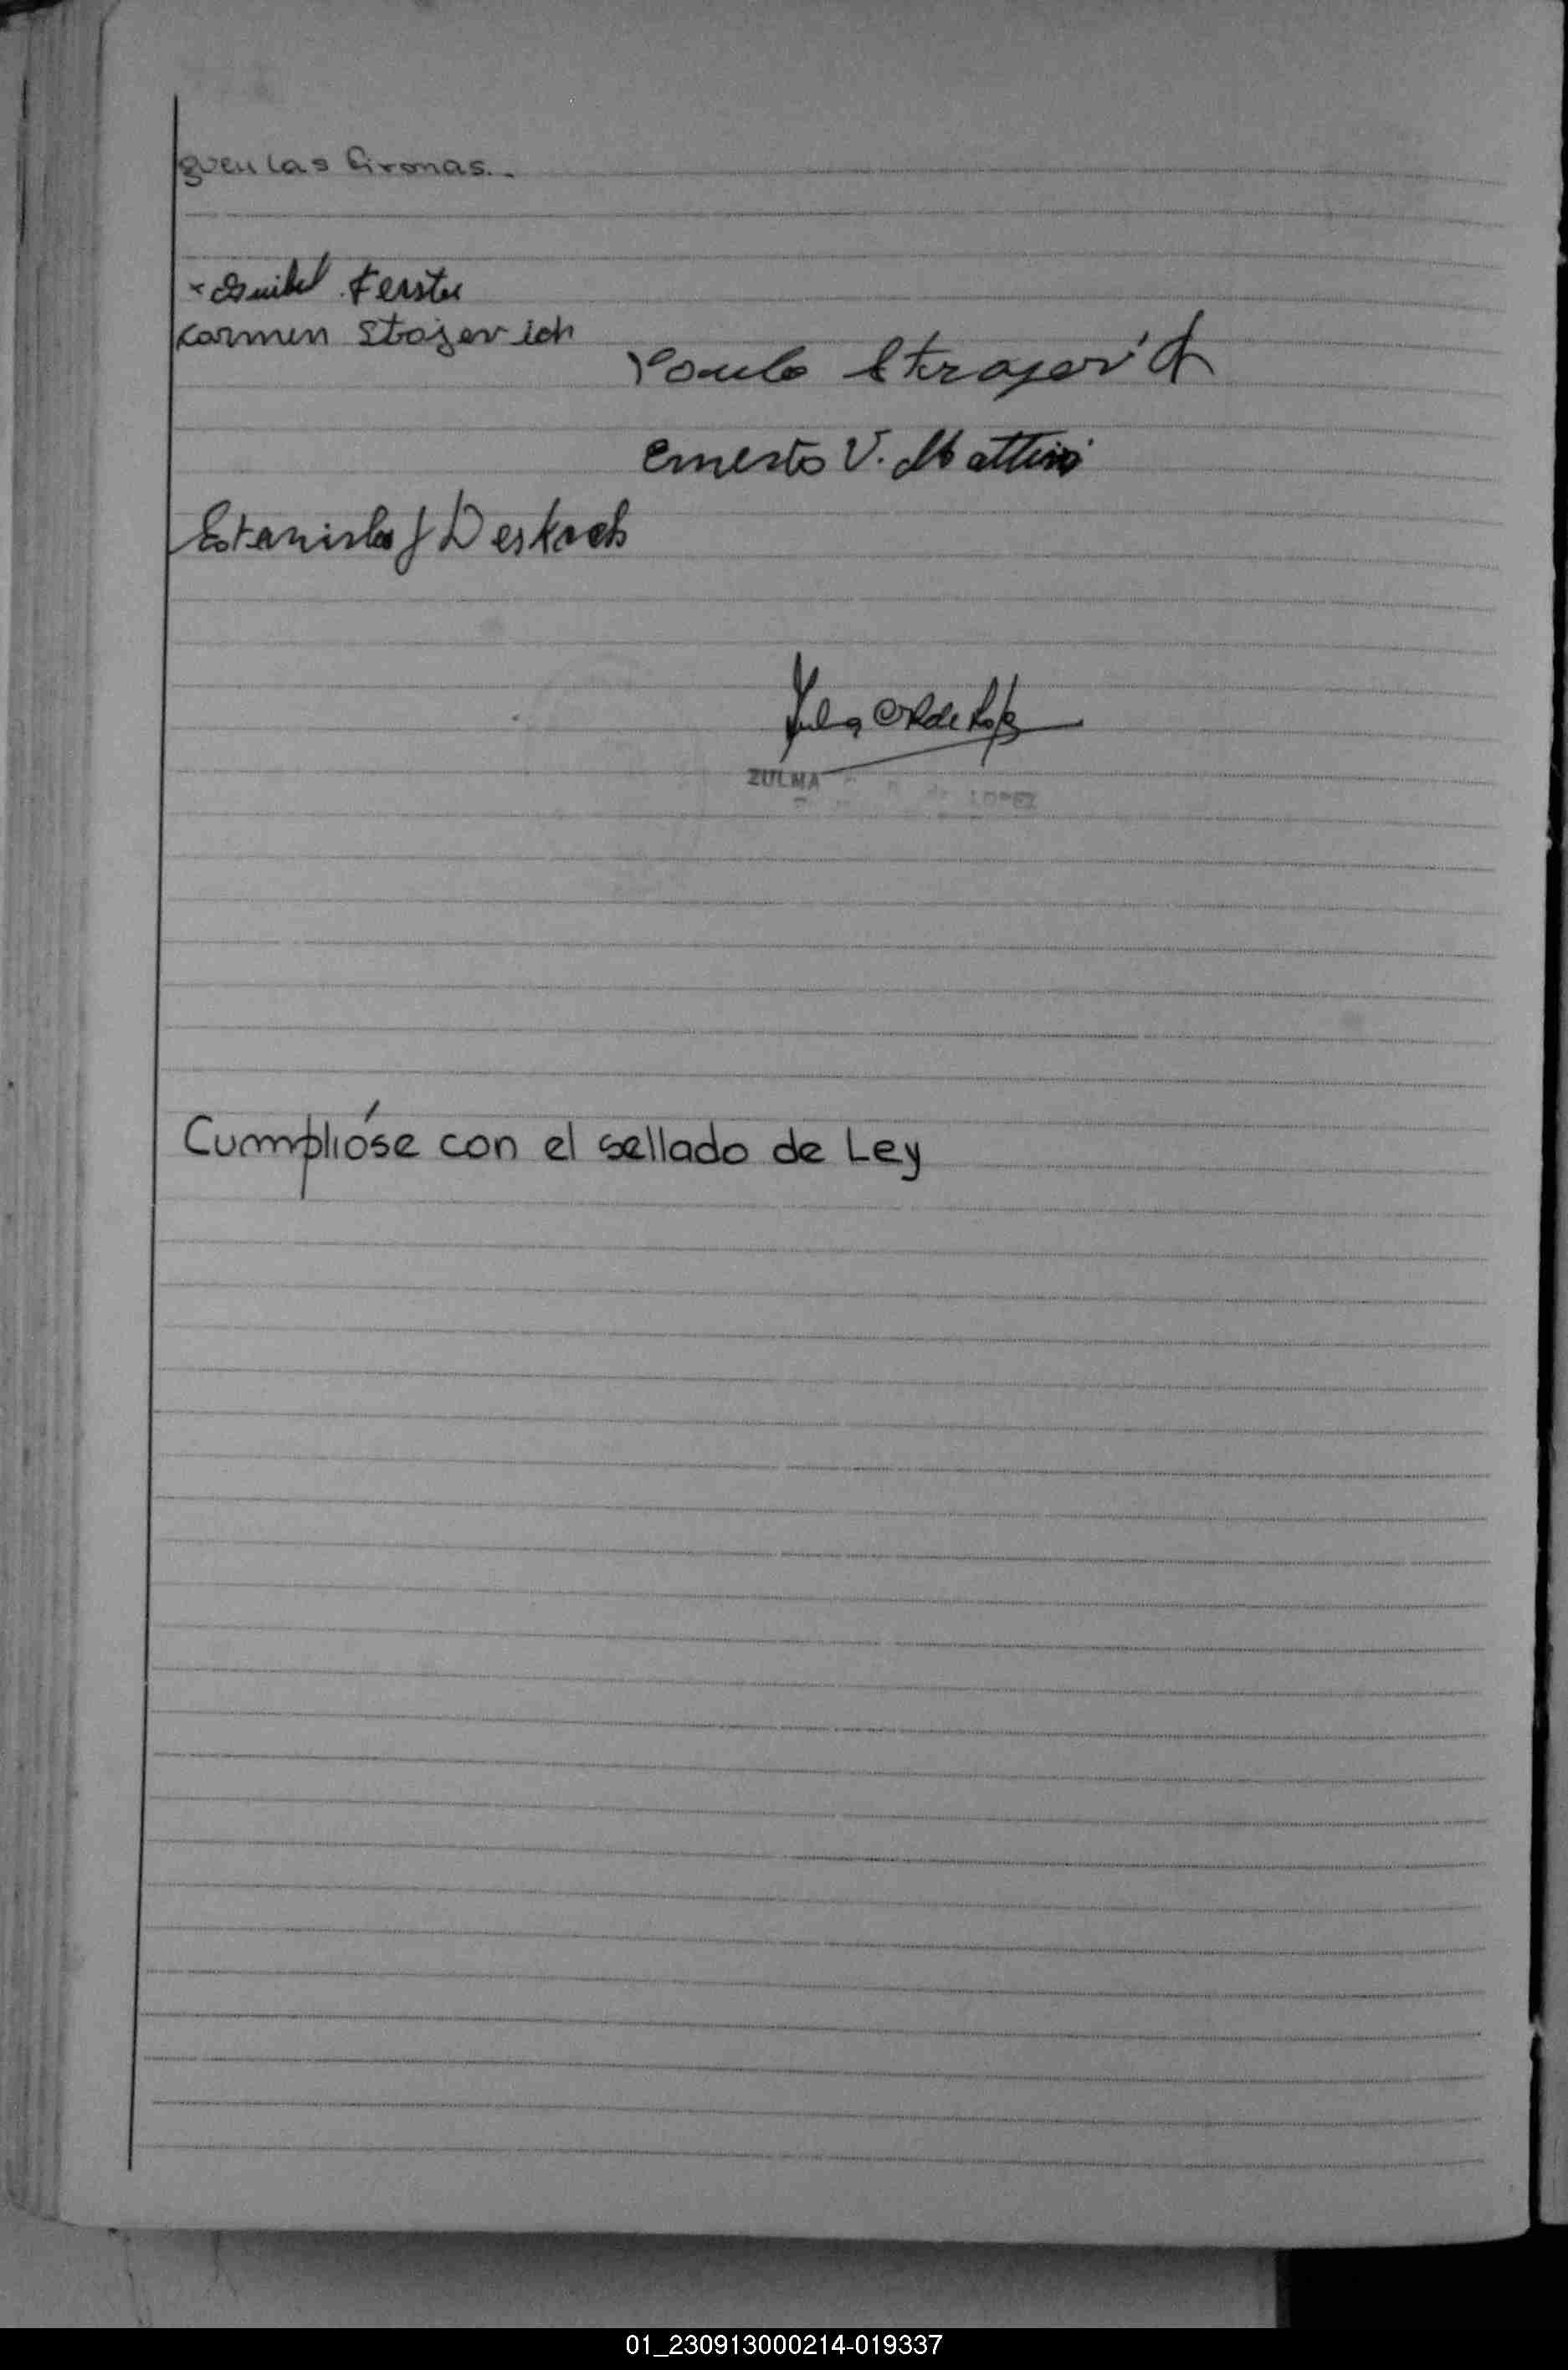 guen las firmas.-
Kerster
Carmen Stojevich
Paulo Strajevich
Ernesto V. Mattini
Estanislao J Deskoch
ZULMA de LOPEZ
Cumplióse con el sellado de Ley
01_230913000214-019337